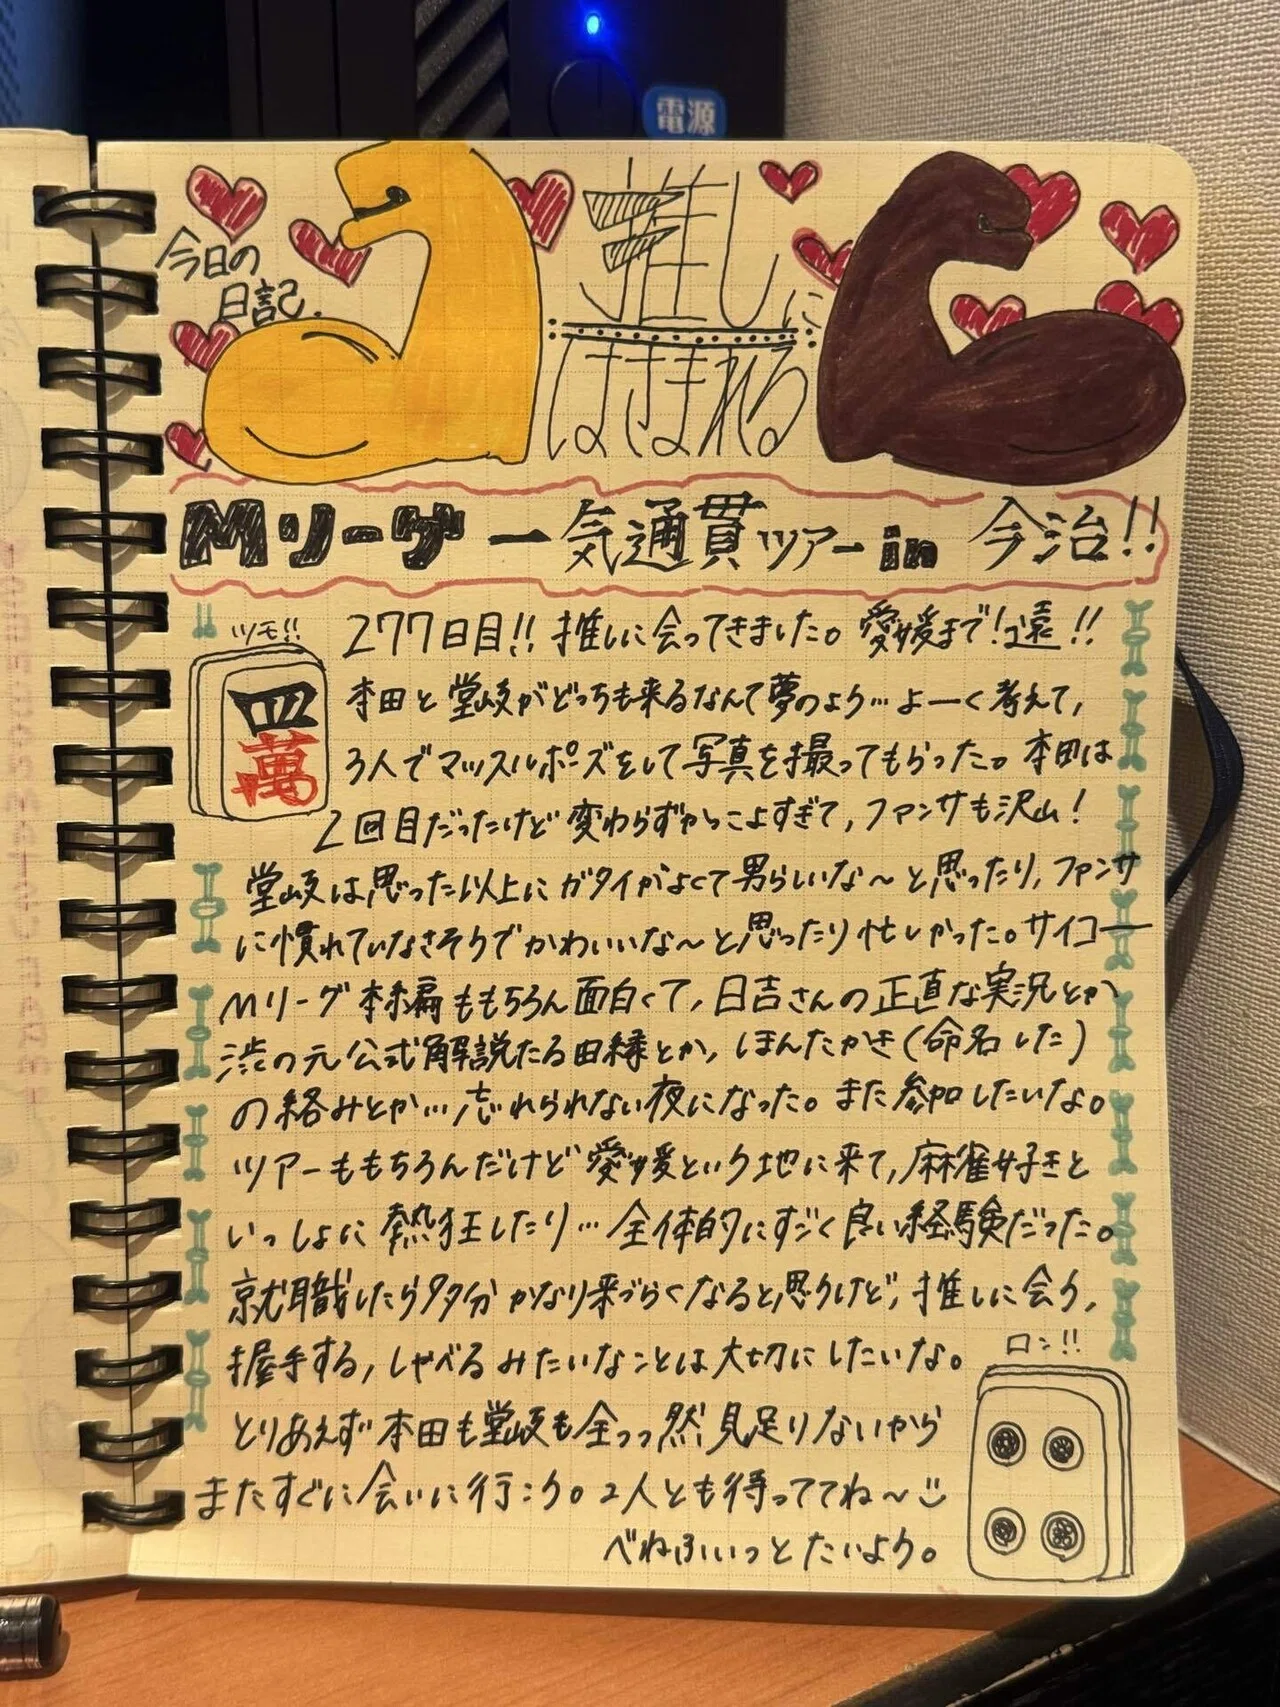 電源
今日の
日記.
推しに
はさまれる
Mリーグ 一気通貫ツアー in 今治!!
ツモ!!
四萬
277日目!! 推しに会ってきました。愛媛まで!遠!!
本田と堂岐がどっちも来るなんて夢のよう…よーく考えて,
3人でマッスルポーズをして写真を撮ってもらった。本田は
2回目だったけど変わらずかっこよすぎて,ファンサも沢山!
堂岐は思った以上にガタイがよくて男らしいな〜と思ったり,ファンサ
に慣れていなさそうでかわいいな〜と思ったり忙しかった。サイコー
Mリーグ本編ももちろん面白くて,日吉さんの正直な実況とか
渋の元公式解説たる由縁とか,ほんたかき(命名した)
の絡みとか…忘れられない夜になった。また参加したいな。
ツアーももちろんだけど愛媛という地に来て,麻雀好きと
いっしょに熱狂したり…全体的にすごく良い経験だった。
就職したら多分かなり来づらくなると思うけど,推しに会う,
握手する,しゃべるみたいなことは大切にしたいな。
とりあえず本田も堂岐も全っっ然見足りないから
またすぐに会いに行こう。2人とも待っててね〜
べねふぃっとたいより。
ロン!!